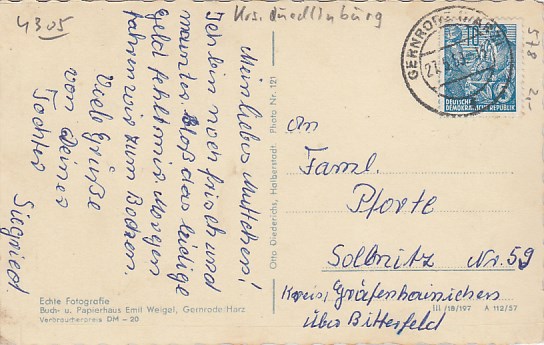 4305
Krs. Quedlinburg
Mein liebes Muttchen!
Ich bin noch frisch und
munter. Bloß das leidige
Geld fehlt mir. Morgen
fahren wir zum Brocken.
Viele Grüße
von Deiner
Tochter
Siegried
Otto Diederichs, Halberstadt. Photo Nr. 121
GERNRODE (HARZ)
10
DEUTSCHE
DEMOKRATISCHE REPUBLIK
578
2,-
An
Faml.
Pforte
Sollnitz Nr. 59
Kreis, Gräfenhainichen
über Bitterfeld
Echte Fotografie
Buch- u. Papierhaus Emil Weigel, Gernrode/Harz
Verbraucherpreis DM -20
III/18/197 A 112/57